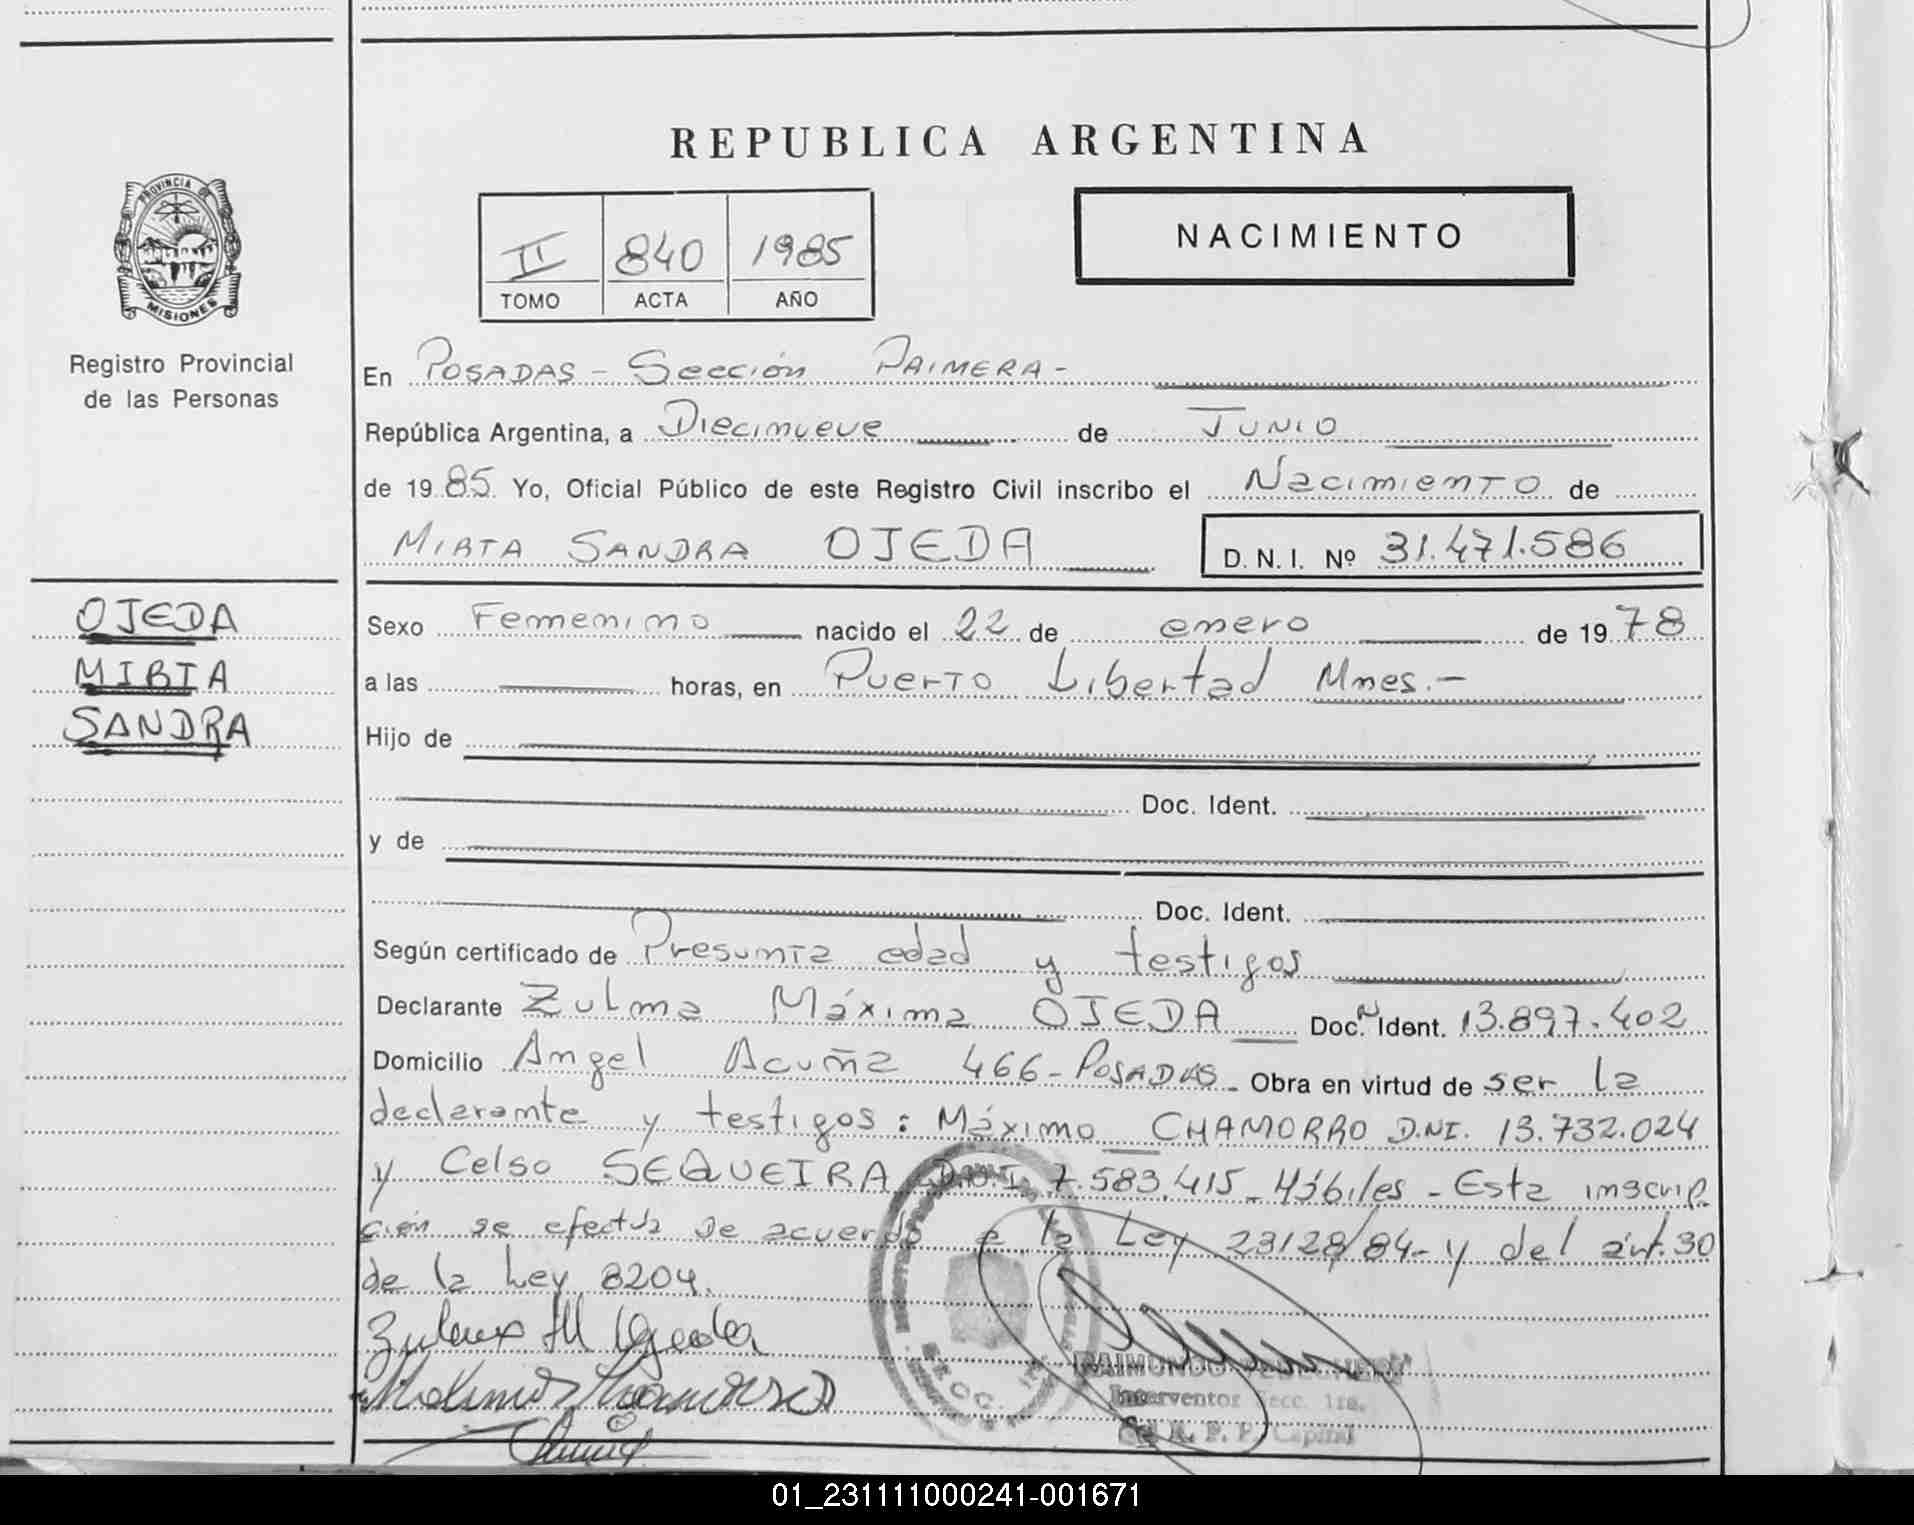 REPUBLICA ARGENTINA
PROVINCIA DE
MISIONES
Registro Provincial
de las Personas
II 840 1985
TOMO ACTA AÑO
NACIMIENTO
En POSADAS - Sección PRIMERA -
República Argentina, a Diecinueve de JUNIO
de 1985. Yo, Oficial Público de este Registro Civil inscribo el Nacimiento de
MIRTA SANDRA OJEDA D. N. I. Nº 31.471.586
OJEDA
MIRTA
SANDRA
Sexo Femenino nacido el 22 de enero de 1978
a las horas, en Puerto Libertad Mnes.-
Hijo de
Doc. Ident.
y de
Doc. Ident.
Según certificado de Presunta edad y testigos
Declarante Zulma Máxima OJEDA Doc. Ident. 13.897.402
Domicilio Angel Acuña 466 - POSADAS - Obra en virtud de ser la
declarante y testigos: Máximo CHAMORRO D.NI. 13.732.024
y Celso SEQUEIRA D.N.I 7.583.415 - Hábiles - Esta inscrip-
ción se efectúa de acuerdo a la Ley 23128/84- y del árt. 30
de la Ley 8204.
Zulma M Ojeda
RAIMUNDO
Interventor Secc. 1ra.
R. P. P. Capital
01_231111000241-001671